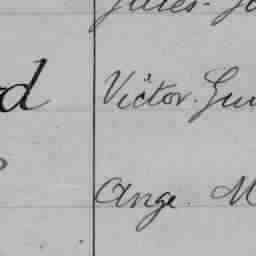 Jules-
d Victor. Gu
Ange. M